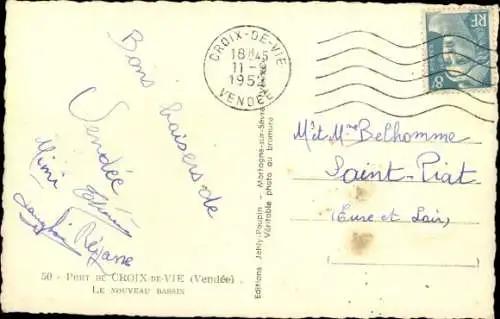 CROIX-DE-VIE
18H45
11-
195
VENDÉE
RF
8F
Bons baisers de
Vendée
Mimi
Réjane
Mr et Mme Belhomme
Saint-Piat
(Eure et Loir)
Editions Jehly-Poupin - Mortagne-sur-Sèvre
Véritable photo au bromure
50 - PORT DE CROIX-DE-VIE (Vendée)
LE NOUVEAU BASSIN